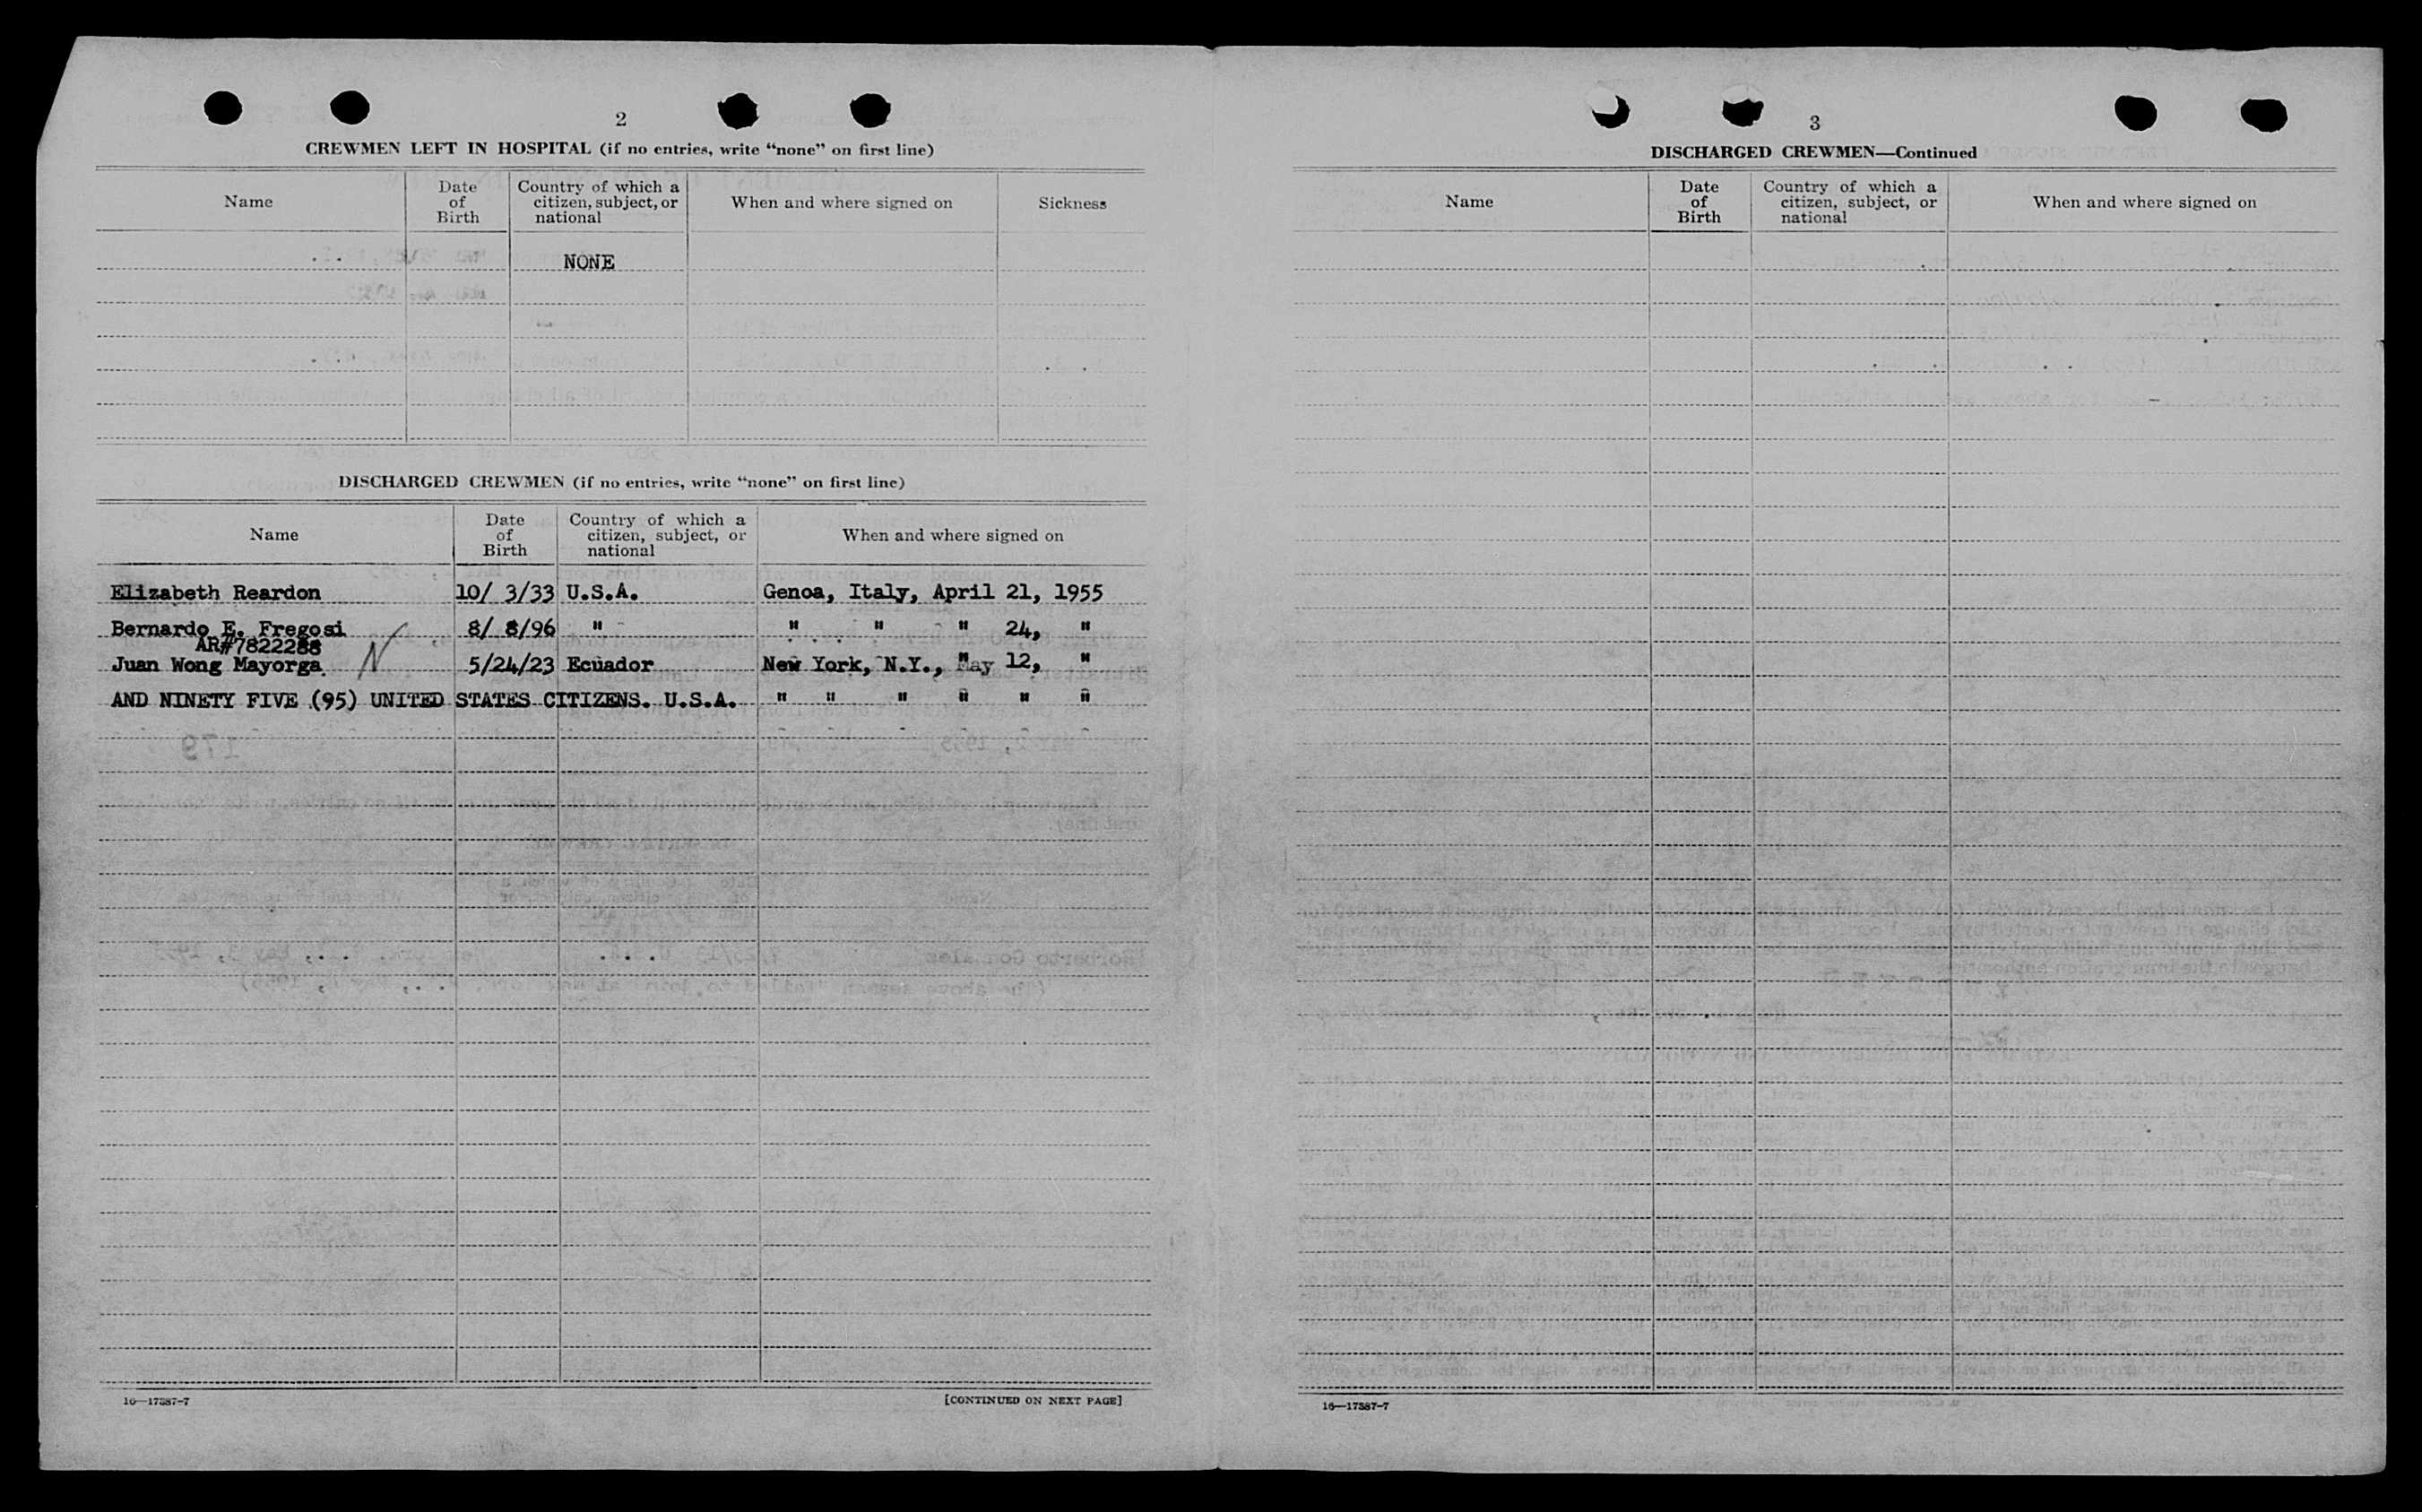 2
CREWMEN LEFT IN HOSPITAL (if no entries, write “none” on first line)
Name
Date of Birth
Country of which a citizen, subject, or national
When and where signed on
Sickness
NONE
DISCHARGED CREWMEN (if no entries, write “none” on first line)
Name
Date of Birth
Country of which a citizen, subject, or national
When and where signed on
Elizabeth Reardon 10/ 3/33 U.S.A. Genoa, Italy, April 21, 1955
Bernardo E. Fregosi 8/ 8/96 " " " " 24, "
AR#7822288
Juan Wong Mayorga N 5/24/23 Ecuador New York, N.Y., May 12, "
AND NINETY FIVE (95) UNITED STATES CITIZENS. U.S.A. " " " " " "
16—17387-7
[CONTINUED ON NEXT PAGE]
3
DISCHARGED CREWMEN—Continued
Name
Date of Birth
Country of which a citizen, subject, or national
When and where signed on
16—17387-7